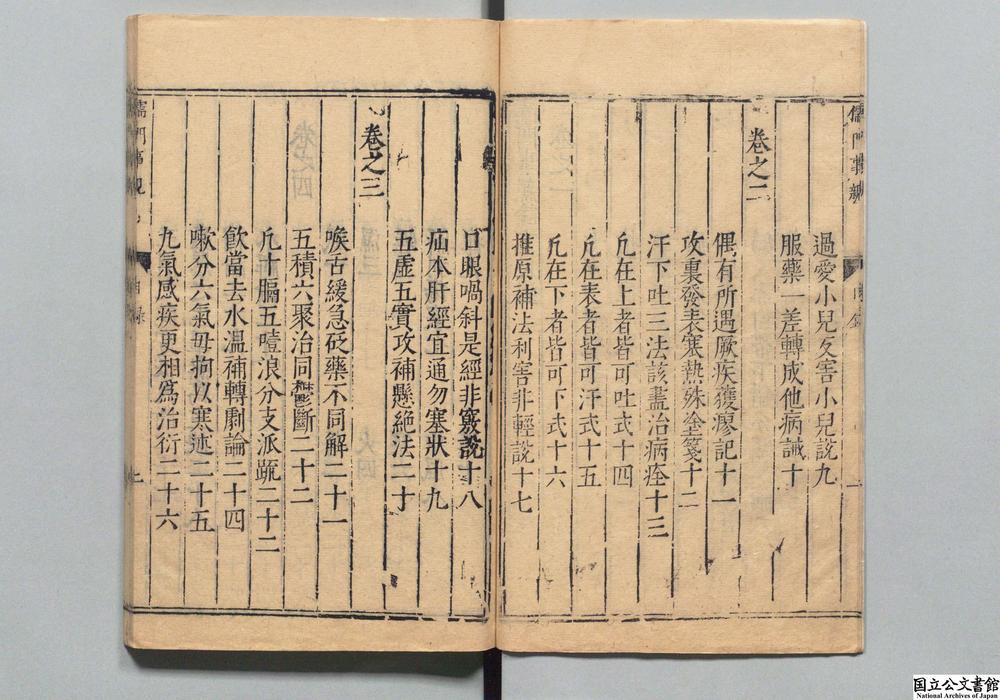 儒門事親
目錄
過愛小兒反害小兒說九
服藥一差轉成他病誡十
卷之二
偶有所遇厥疾獲瘳記十一
攻裏發表寒熱殊塗箋十二
汗下吐三法該盡治病詮十三
凡在上者皆可吐式十四
凡在表者皆可汗式十五
凡在下者皆可下式十六
推原補法利害非輕說十七
口眼喎斜是經非竅說十八
疝本肝經宜通勿塞狀十九
五虛五實攻補懸絕法二十
卷之三
喉舌緩急砭藥不同解二十一
五積六聚治同鬱斷二十二
凡十膈五噎浪分支派疏二十二
飲當去水溫補轉劇論二十四
嗽分六氣毋拘以寒述二十五
九氣感疾更相為治衍二十六
儒門事親
目錄
国立公文書館
National Archives of Japan